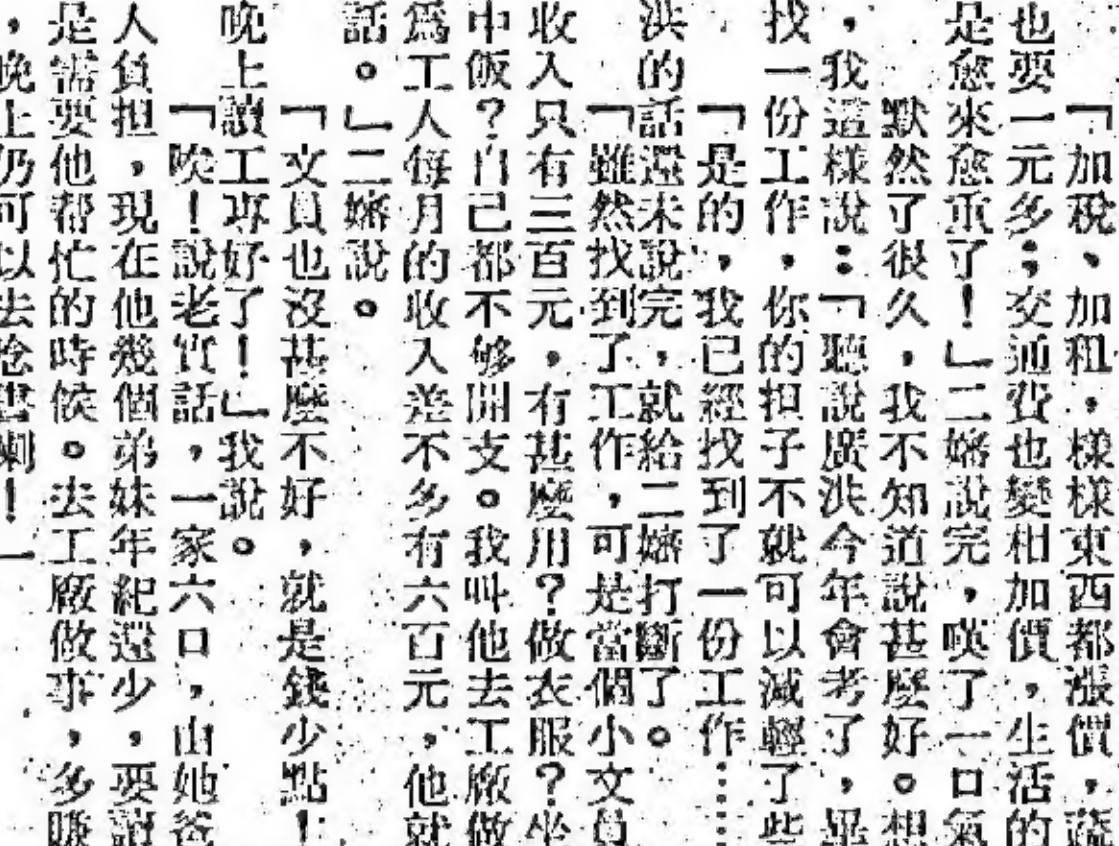 「加稅、加租，樣樣東西都漲價，蔬
也要一元多；交通費也變相加價，生活的
是愈來愈重了！」二嬸說完，嘆了一口氣
默然了很久，我不知道說甚麼好。想
，我這樣說：「聽說廣洪今年會考了，畢
找一份工作，你的担子不就可以減輕了些
「是的，我已經找到了一份工作……
洪的話還未說完，就給二嬸打斷了。
「雖然找到了工作，可是當個小文員
收入只有三百元，有甚麼用？做衣服？坐
中飯？自己都不够開支。我叫他去工廠做
為工人每月的收入差不多有六百元，他就
話。」二嬸說。
「文員也沒甚麼不好，就是錢少點！
晚上讀工專好了！」我說。
「唉！說老實話，一家六口，由她爸
人負担，現在他幾個弟妹年紀還少，要讀
是需要他帮忙的時候。去工廠做事，多賺
，晚上仍可以去唸書喇！